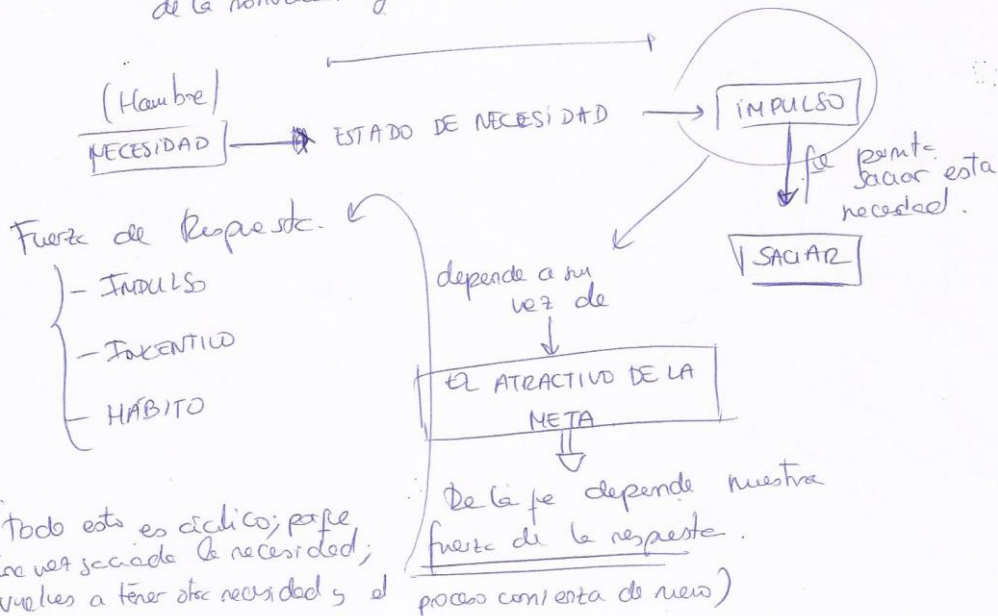 de la
(Hambre)
NECESIDAD
ESTADO DE NECESIDAD
IMPULSO
saciar esta
necesidad.
SACIAR
Fuerza de Respuesta.
- IMPULSO
- INCENTIVO
- HÁBITO
depende a su
vez de
EL ATRACTIVO DE LA
META
De la qe depende nuestra
fuerza de la respuesta.
todo esto es cíclico; porqe
una vez saciada la necesidad;
vuelves a tener otra necesidad y el
proceso comienza de nuevo)